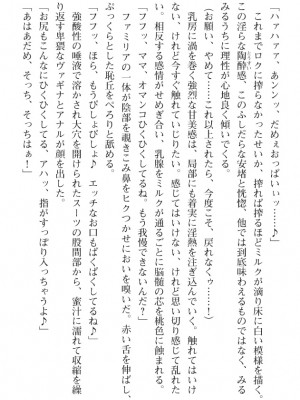 「ハァハァァ、あンンッ、だめぇおっぱいぃ……♪」
これまでロクに搾らなかったせいか、搾れば搾るほどミルクが滴り床に白い模様を描く。
この淫らな陶酔感。このふしだらな安堵と恍惚。他では到底味わえるものではなく、みる
みるうちに理性が心地良く傾いでくる。
（お願い、やめて……これ以上されたら、今度こそ、戻れなくぅ……！）
乳房に渦を巻く強烈な甘美感は、局部にも着実に淫熱を注ぎ込んでいく。触れてはいけ
ない、けれど今すぐ触れていじりたい。感じてはいけない、けれど思い切り感じて乱れた
い。相反する感情がせめぎ合い、乳腺をミルクが通るごとに脳髄の芯を桃色に蝕まれる。
「フフッ、ママ、オマンコひくひくしてるね。もう我慢できないんだ？」
ファミリアの一体が陰部を覗きこみ鼻をヒクつかせにおいを嗅いだ。赤い舌を伸ばし、
ぷっくらとした恥丘をべろりと舐める。
「フフッ、ほら、もうびしょびしょ♪　エッチなお口もぱくぱくしてるね♪」
強酸性の唾液で溶かされ大穴を開けられたスーツの股間部から、蜜汁に濡れて収縮を繰
り返す卑猥なヴァギナとアナルが顔を出した。
「お尻もこんなにひくひくしてる、アハッ、指がすっぽり入っちゃうよ♪」
「あはぁあめ、そっち、そっちはぁ！」